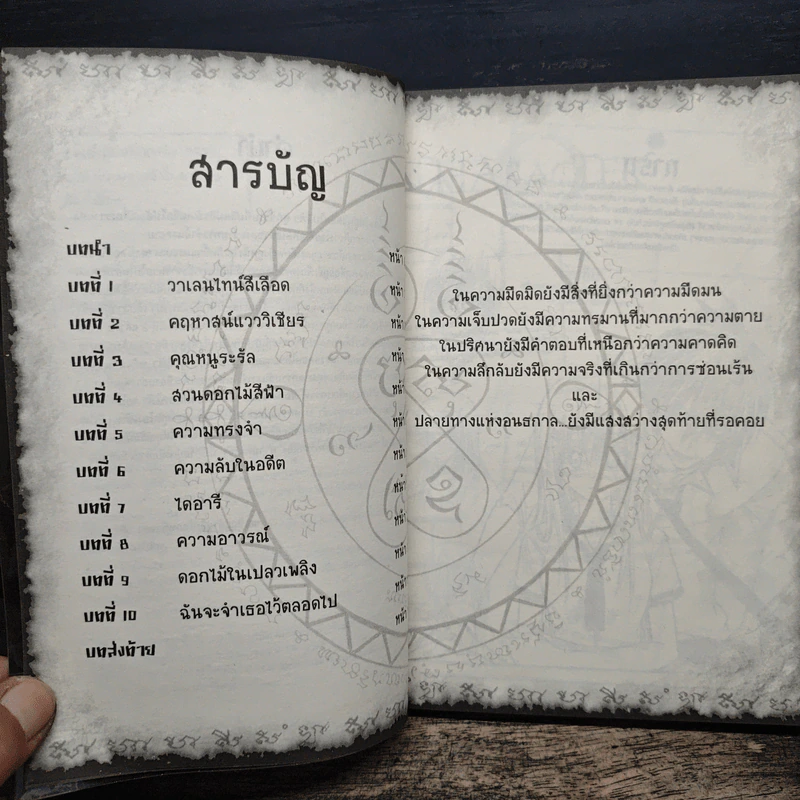 สารบัญ
บทนำ หน้า
บทที่ 1 วาเลนไทน์สีเลือด หน้า
บทที่ 2 คฤหาสน์แวววิเชียร หน้า
บทที่ 3 คุณหนูระรัล หน้า
บทที่ 4 สวนดอกไม้สีฟ้า หน้า
บทที่ 5 ความทรงจำ หน้า
บทที่ 6 ความลับในอดีต หน้า
บทที่ 7 ไดอารี หน้า
บทที่ 8 ความอาวรณ์ หน้า
บทที่ 9 ดอกไม้ในเปลวเพลิง หน้า
บทที่ 10 ฉันจะจำเธอไว้ตลอดไป หน้า
บทส่งท้าย หน้า
ในความมืดมิดยังมีสิ่งที่ยิ่งกว่าความมืดมน
ในความเจ็บปวดยังมีความทรมานที่มากกว่าความตาย
ในปริศนายังมีคำตอบที่เหนือกว่าความคาดคิด
ในความลึกลับยังมีความจริงที่เกินกว่าการซ่อนเร้น
และ
ปลายทางแห่งอนธกาล...ยังมีแสงสว่างสุดท้ายที่รอคอย